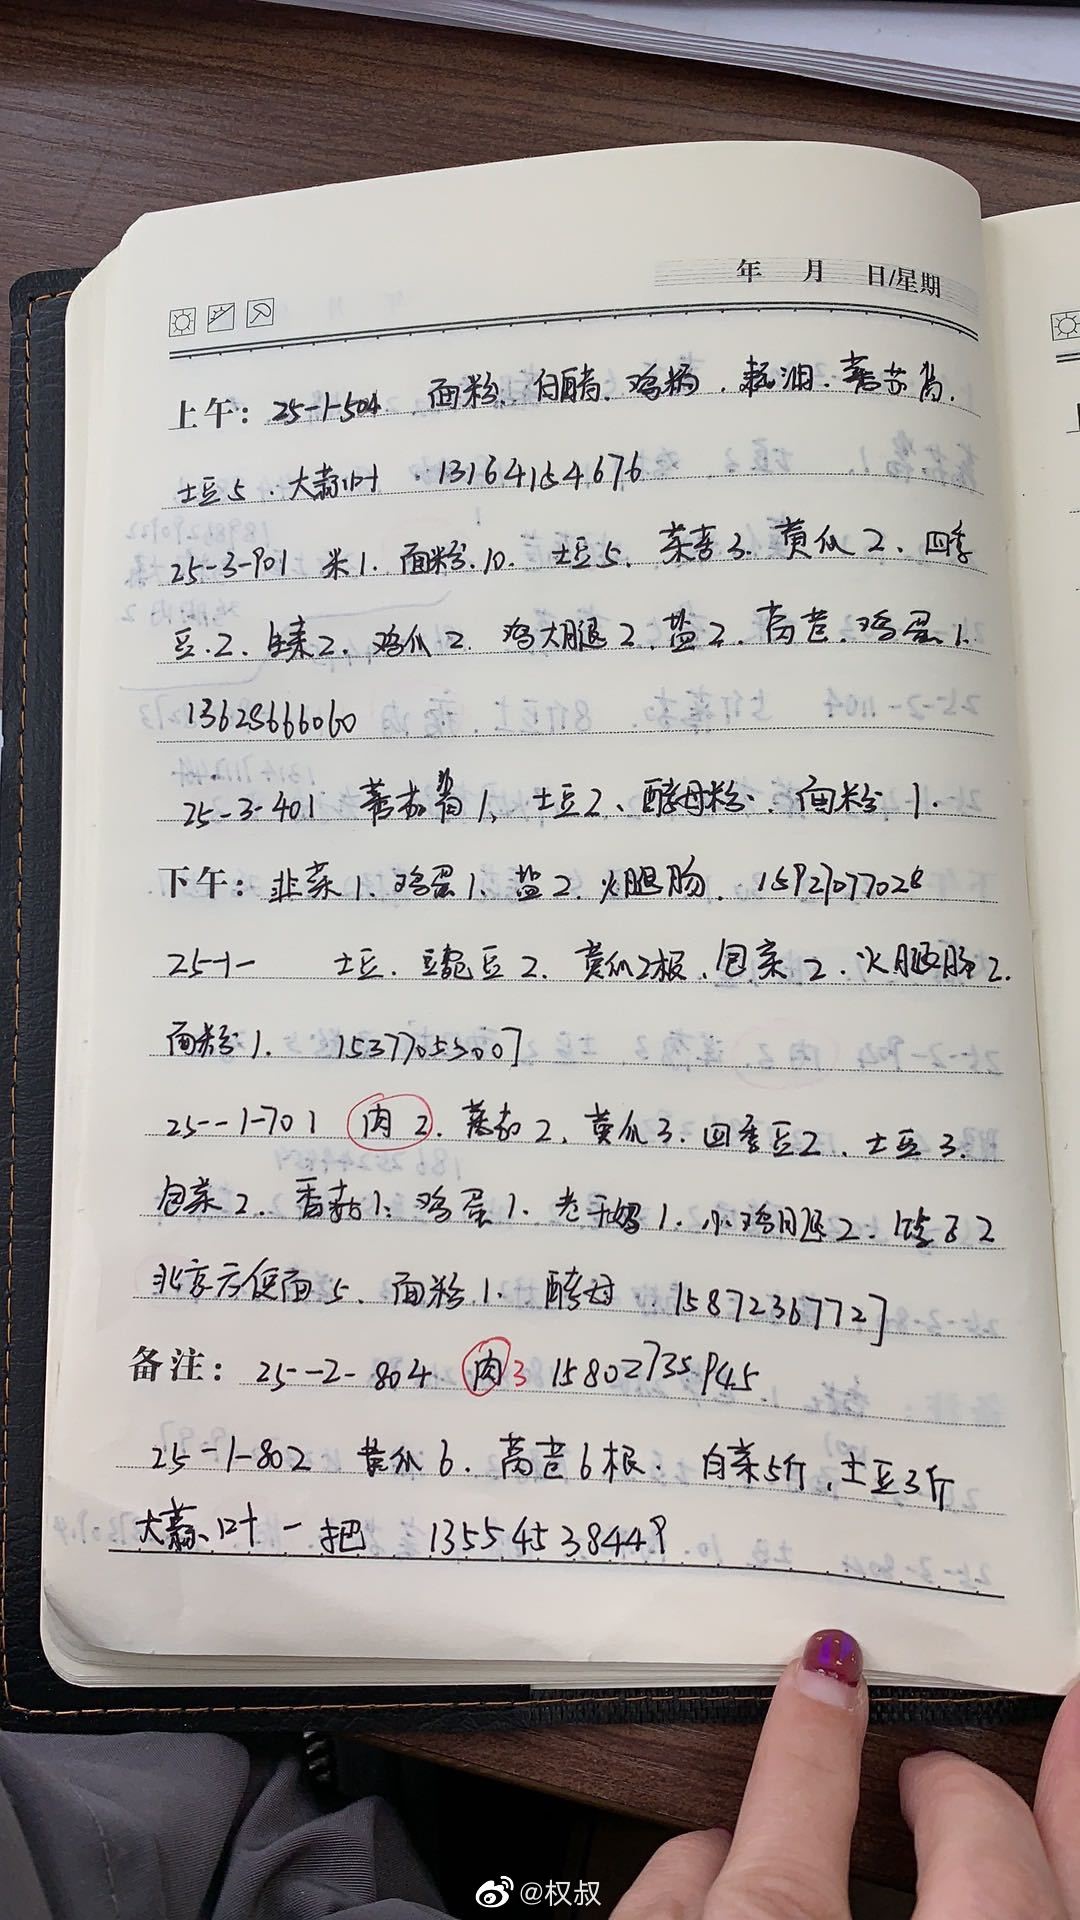 年 月 日/星期
上午: 25-1-504 面粉、白醋、鸡精、耗油、蕃茄酱、
土豆5、大蒜叶 13164154676
25-3-901 米1、面粉10、土豆5、菜苔3、黄瓜2、四季
豆2、生菜2、鸡爪2、鸡大腿2、盐2、莴苣、鸡蛋1、
13628666060
25-3-401 蕃茄酱1、土豆2、酵母粉、面粉1、
下午: 韭菜1、鸡蛋1、盐2、火腿肠、15927077028
25-1- 土豆、豌豆2、黄瓜2根、包菜2、火腿肠2、
面粉1、 15377053007
25--1-701 肉2、蕃茄2、黄瓜3、四季豆2、土豆3、
包菜2、香菇1、鸡蛋1、老干妈1、小鸡腿2、2
北京方便面5、面粉1、酵母、15872367727
备注: 25--2-804 肉3 15802735945
25-1-802 黄瓜6、莴苣6根、白菜5斤、土豆3斤
大蒜叶一把 13554538449
@权叔